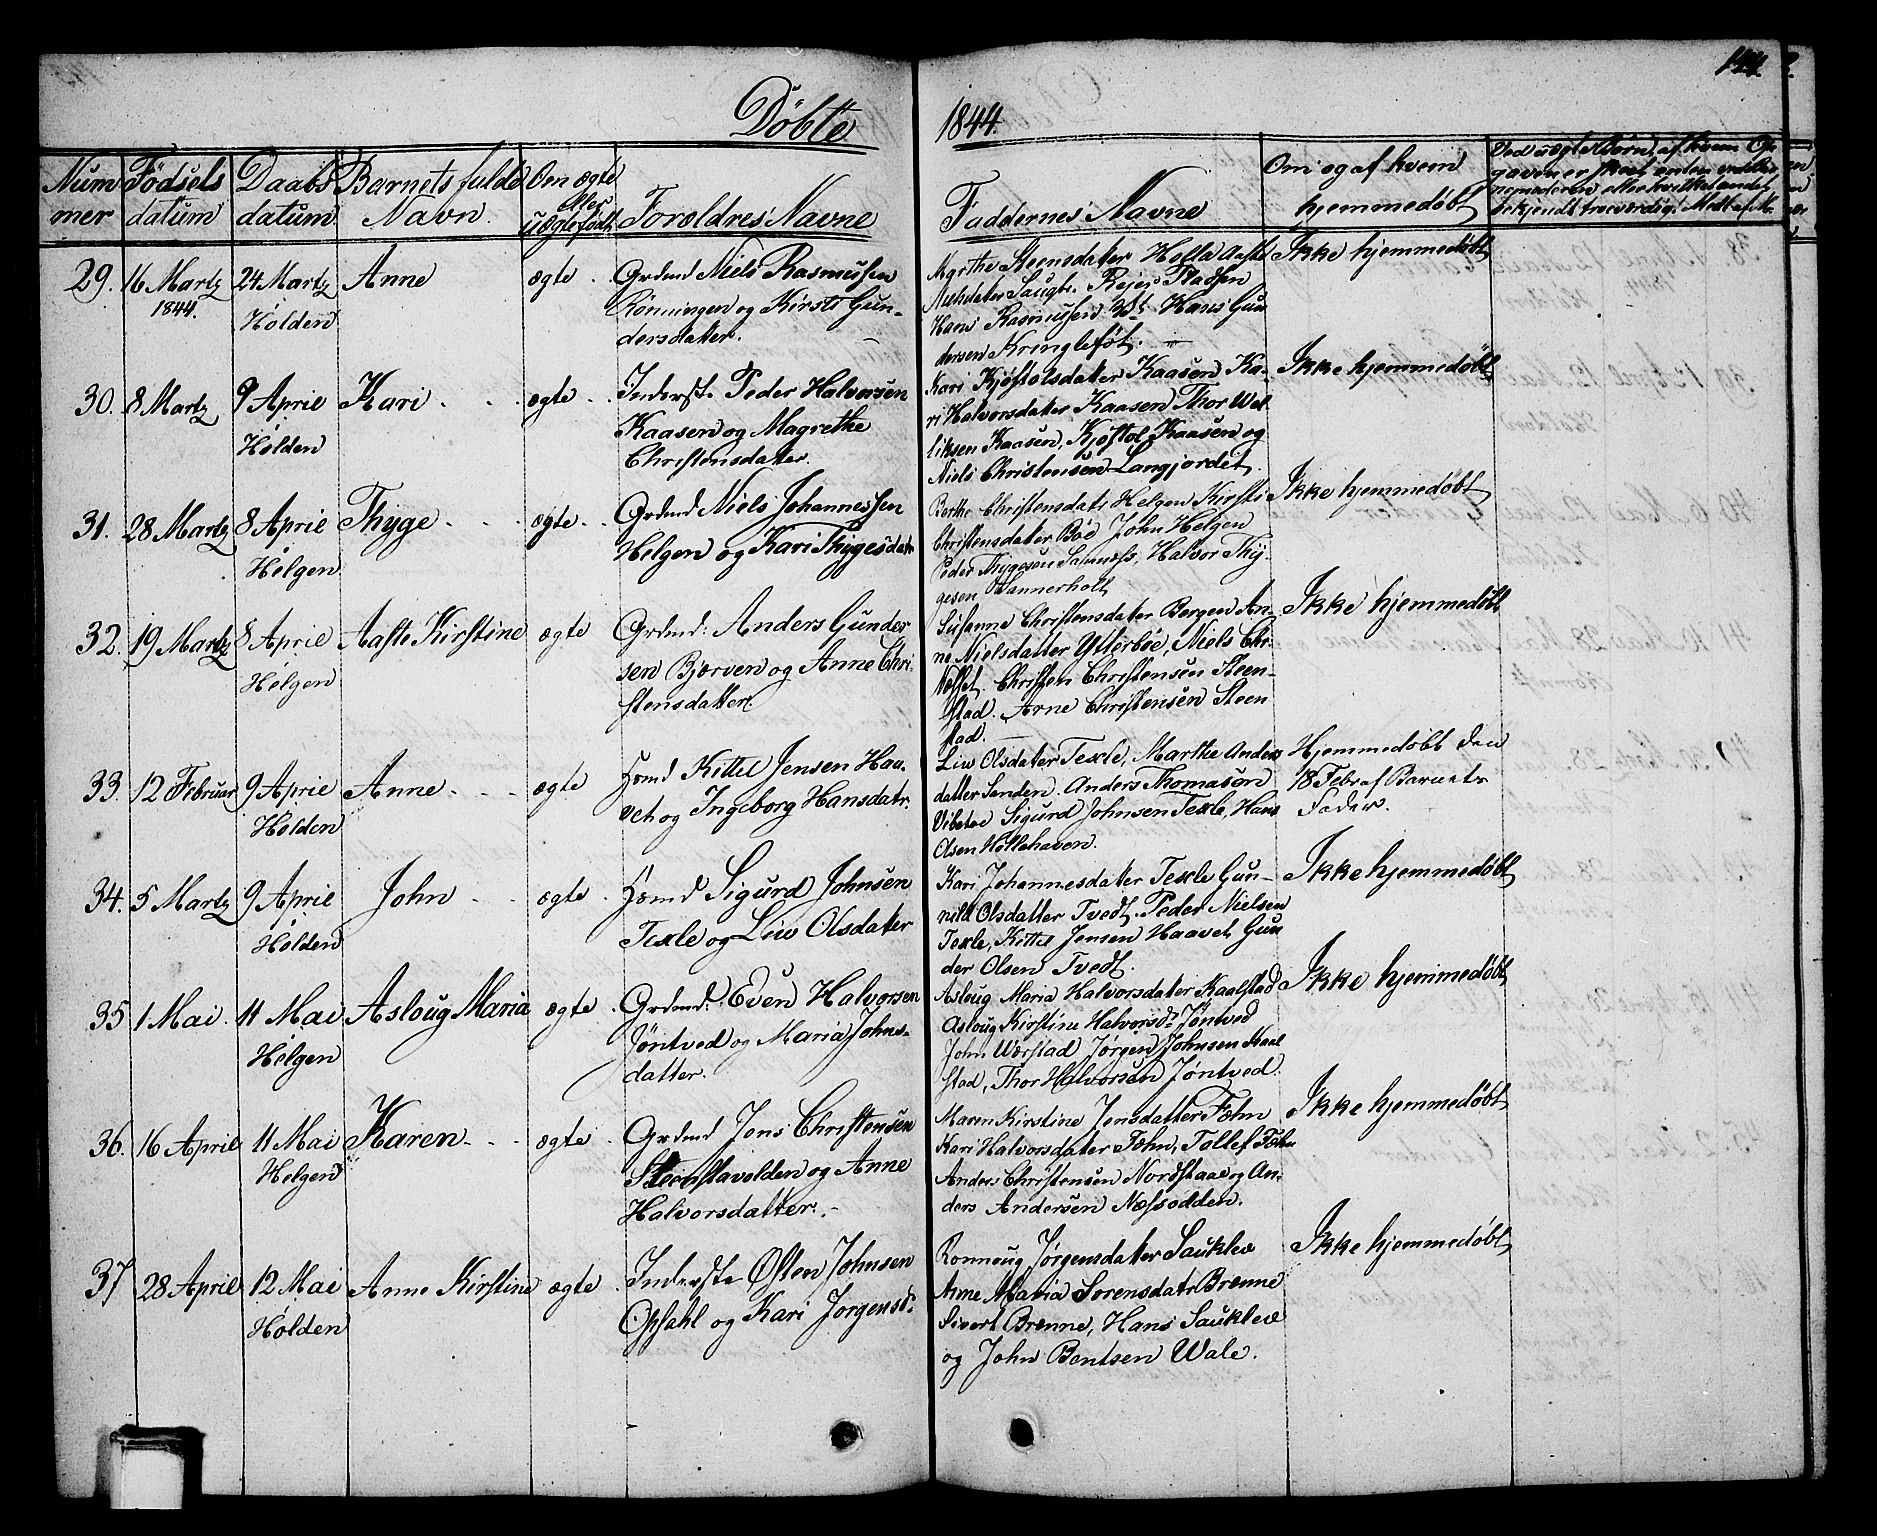 144.
Döbte 1844.
Num mer
Födsels datum
Daabs datum
Barnets fulde Navn.
Om ægte eller uægtefödt
Forældres Navne
Faddernes Navne
Om og af hvem hjemmedöbt
29. 16 Martz 1844. 24 Martz Holden Anne ægte
Grdmd Niels Rasmusen
Rönningen og Kirsti Gun-
dersdatter.
Hans Rasmusen Hans Gun
dersen Kringlefót.
Ikke hjemmedöbt
30. 8 Martz 9 April Holden Kari ægte
Inderst. Peder Halvorsen
Kaasen og Magrethe
Christensdatter.
Kari Kjöstolsdatter Kaasen Ka-
ri Halvorsdatter Kaasen Thor Wet
liksen Kaasen, Kjöstol Kaasen og
Niels Christensen Langjordet.
Ikke hjemmedöbt
31. 28 Martz 8 April Helgen Thyge ægte
Grdmd Niels Johannessen
Helgen og Kari Thygesdatr
Berthe Christensdatr Helgen Kirsti
Christensdater Böe John Helgen
Peder Thygesen Halvor Thy-
gesen Wannerholt
Ikke hjemmedöbt
32. 19 Martz 8 April Helgen Aaste Kirstine ægte
Grdmd: Anders Gunder
sen Bjerven og Anne Chri-
stensdatter.
Susanne Christensdater Bergen An-
ne Nielsdatter Ytterböe, Niels Chr.
Næset. Christen Christensen Steen-
stad. Arne Christensen Steen
stad.
Ikke hjemmedöbt
33. 12 Februar 9 April Holden Anne ægte
Hsmd Kittel Jensen Haa-
vet og Ingeborg Hansdatr.
Liv Olsdater Texle, Marthe Anders
datter Sanden. Anders Thomasen
Vibetoe Sigurd Johnsen Texle, Hans
Olsen Hollehaven.
Hjemmedöbt den
18 Febr af Barnets
Fader.
34. 5 Martz 9 April Holden John ægte
Hsmd Sigurd Johnsen
Texle og Liv Olsdater
Kari Johannesdater Texle Gun-
nild Olsdatter Tvedt. Peder Nielsen
Texle, Kittil Jensen Haavet Gun
der Olsen Tvedt.
Ikke hjemmedöbt
35 1 Mai 11 Mai Helgen Aslaug Maria ægte
Grdmd: Even Halvorsen
Jöntved og Maria Johns-
datter.
Aslaug Maria Halvorsdater Kaalstad
Aslaug Kirstine Halvorsd. Jöntved
John Wærstad Jörgen Johnsen Kaal
stad, Thor Halvorsen Jöntved.
Ikke hjemmedöbt
36. 16 April 11 Mai Helgen Karen ægte
Grdmd Jens Christensen
Steenstavolden og Anne
Halvorsdatter.
Maren Kirstine Jensdatter Fæhn
Kari Halvorsdater Fæhn, Tollef Fæhn
Anders Christensen Nordstaae og An-
ders Andersen Næsodden.
Ikke hjemmedöbt
37 28 April 12 Mai Holden Anne Kirstine ægte
Inderste Östen Johnsen
Opsahl og Kari Jörgensd.
Ronnaug Jörgensdater Sauklev
Anne Maria Sörensdatr Brenne
Sivert Brenne, Hans Sauklev
og John Bentsen Wale.
Ikke hjemmedöbt